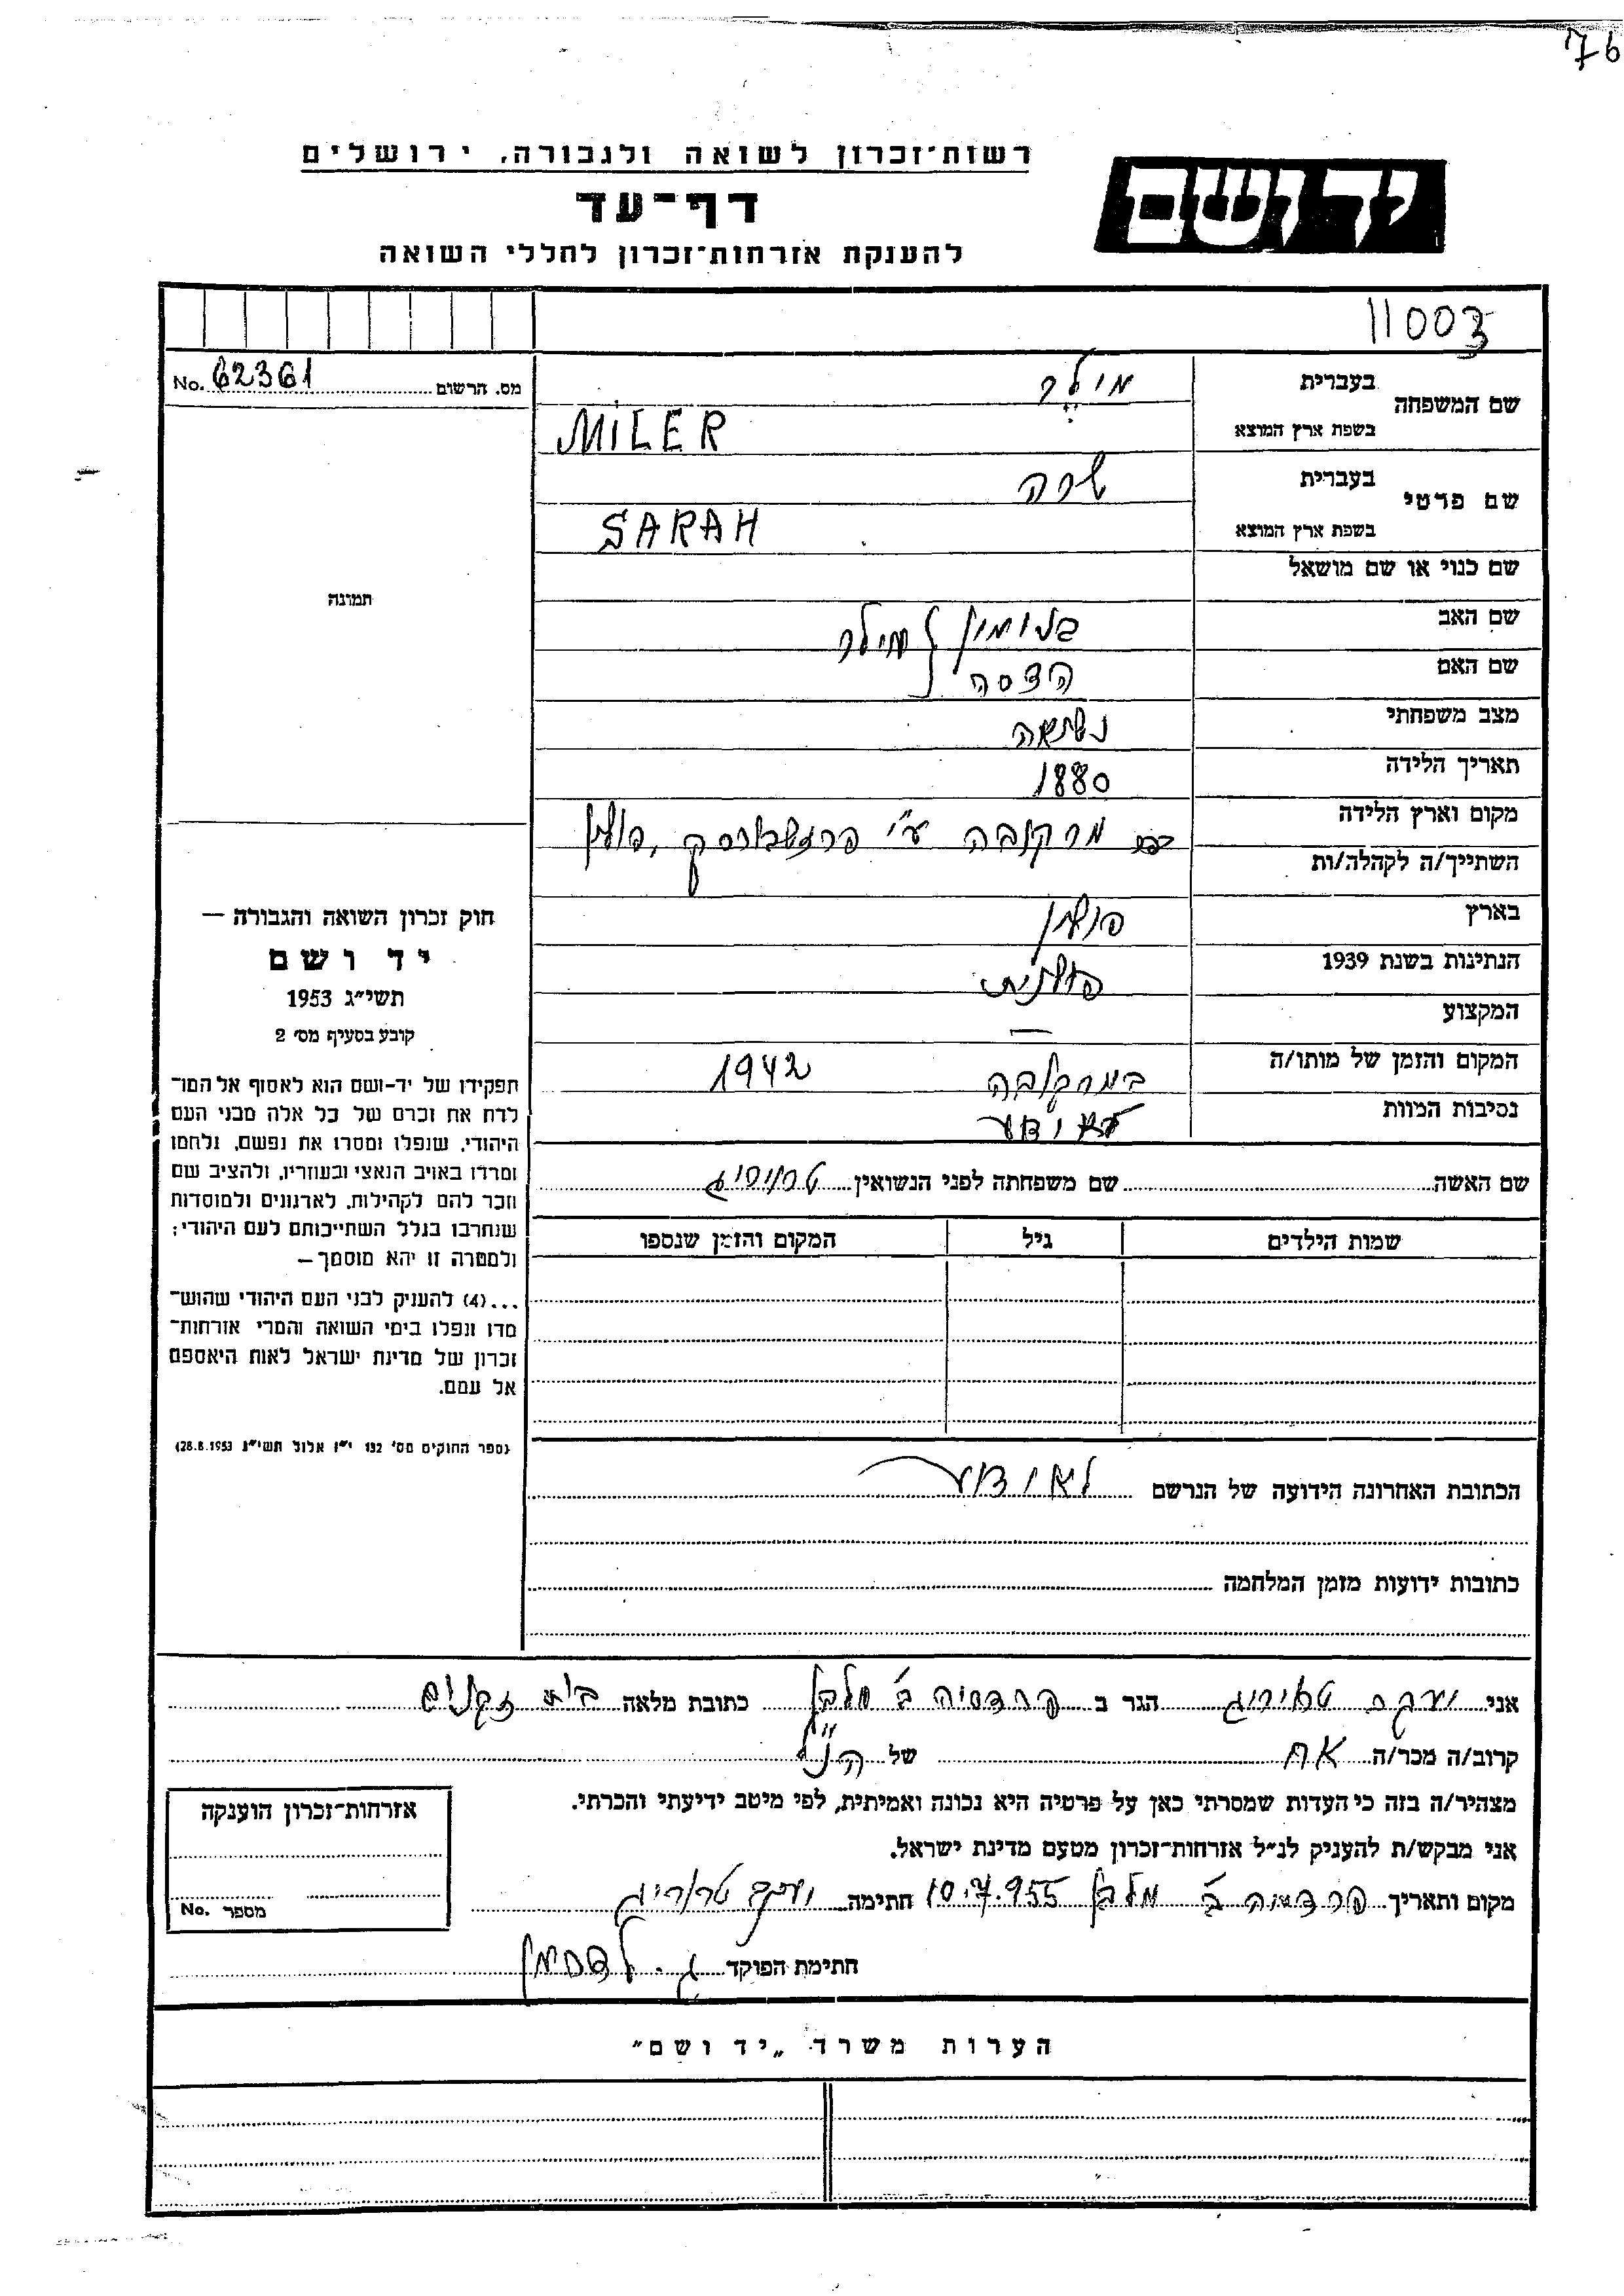 76
רשות־זכרון לשואה ולגבורה, ירושלים
יד ושם
דף־עד
להענקת אזרחות־זכרון לחללי השואה
11003
שם המשפחה בעברית מילר
בשפת ארץ המוצא MILER
שם פרטי בעברית שרה
בשפת ארץ המוצא SARAH
שם כנוי או שם מושאל
שם האב מילר
שם האם הדסה
מצב משפחתי נשואה
תאריך הלידה 1880
מקום וארץ הלידה ע"י פולין
השתייך/ה לקהלה/ות
בארץ פולין
הנתינות בשנת 1939 פולנית
המקצוע —
המקום והזמן של מותו/ה 1942
נסיבות המוות לא ידוע
שם האשה שם משפחתה לפני הנשואין
שמות הילדים גיל המקום והזמן שנספו
הכתובת האחרונה הידועה של הנרשם לא ידוע
כתובות ידועות מזמן המלחמה
מס. הרשום No. 62361
תמונה
חוק זכרון השואה והגבורה —
יד ושם
תשי"ג 1953
קובע בסעיף מס׳ 2
תפקידו של יד-ושם הוא לאסוף אל המו־
לדת את זכרם של כל אלה מבני העם
היהודי, שנפלו ומסרו את נפשם, נלחמו
ומרדו באויב הנאצי ובעוזריו, ולהציב שם
וזכר להם לקהילות, לארגונים ולמוסדות
שנחרבו בגלל השתייכותם לעם היהודי;
ולמטרה זו יהא מוסמך —
...(4) להעניק לבני העם היהודי שהוש־
מדו ונפלו בימי השואה והמרי אזרחות־
זכרון של מדינת ישראל לאות היאספם
אל עמם.
(ספר החוקים מס׳ 132 י"ז אלול תשי"ג 28.8.1953)
אני יעקב הגר ב פרדסיה ב׳ מלבן כתובת מלאה בית זקנים
קרוב/ה מכר/ה אח של הנ"ל
מצהיר/ה בזה כי העדות שמסרתי כאן על פרטיה היא נכונה ואמיתית, לפי מיטב ידיעתי והכרתי.
אני מבקש/ת להעניק לנ"ל אזרחות־זכרון מטעם מדינת ישראל.
מקום ותאריך פרדסיה ב׳ מלבן 10.7.955 חתימה יעקב
חתימת הפוקד
אזרחות־זכרון הוענקה
מספר No.
הערות משרד „יד ושם"